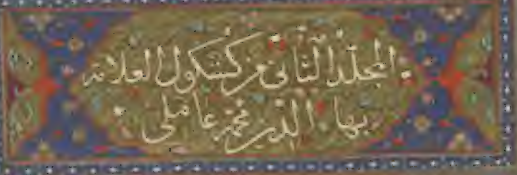 المجلد الثانى من كشكول العلامه
بهاء الدين محمد عاملى